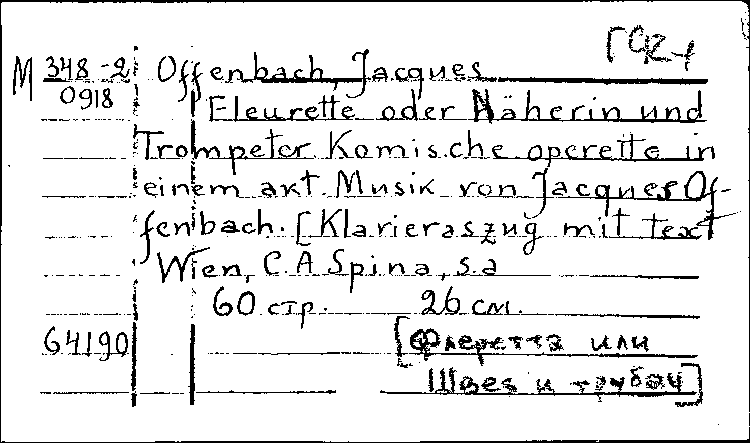 М 348-2
0918
Offenbach, Jacques
Fleurette oder Näherin und
Trompeter Komische operette in
einem akt. Musik von Jacques Of-
fenbach. [Klavieraszug mit text
Wien, C.A Spina, s.a
60 стр. 26 см.
64190
[Флеретта или
Швея и трубач]